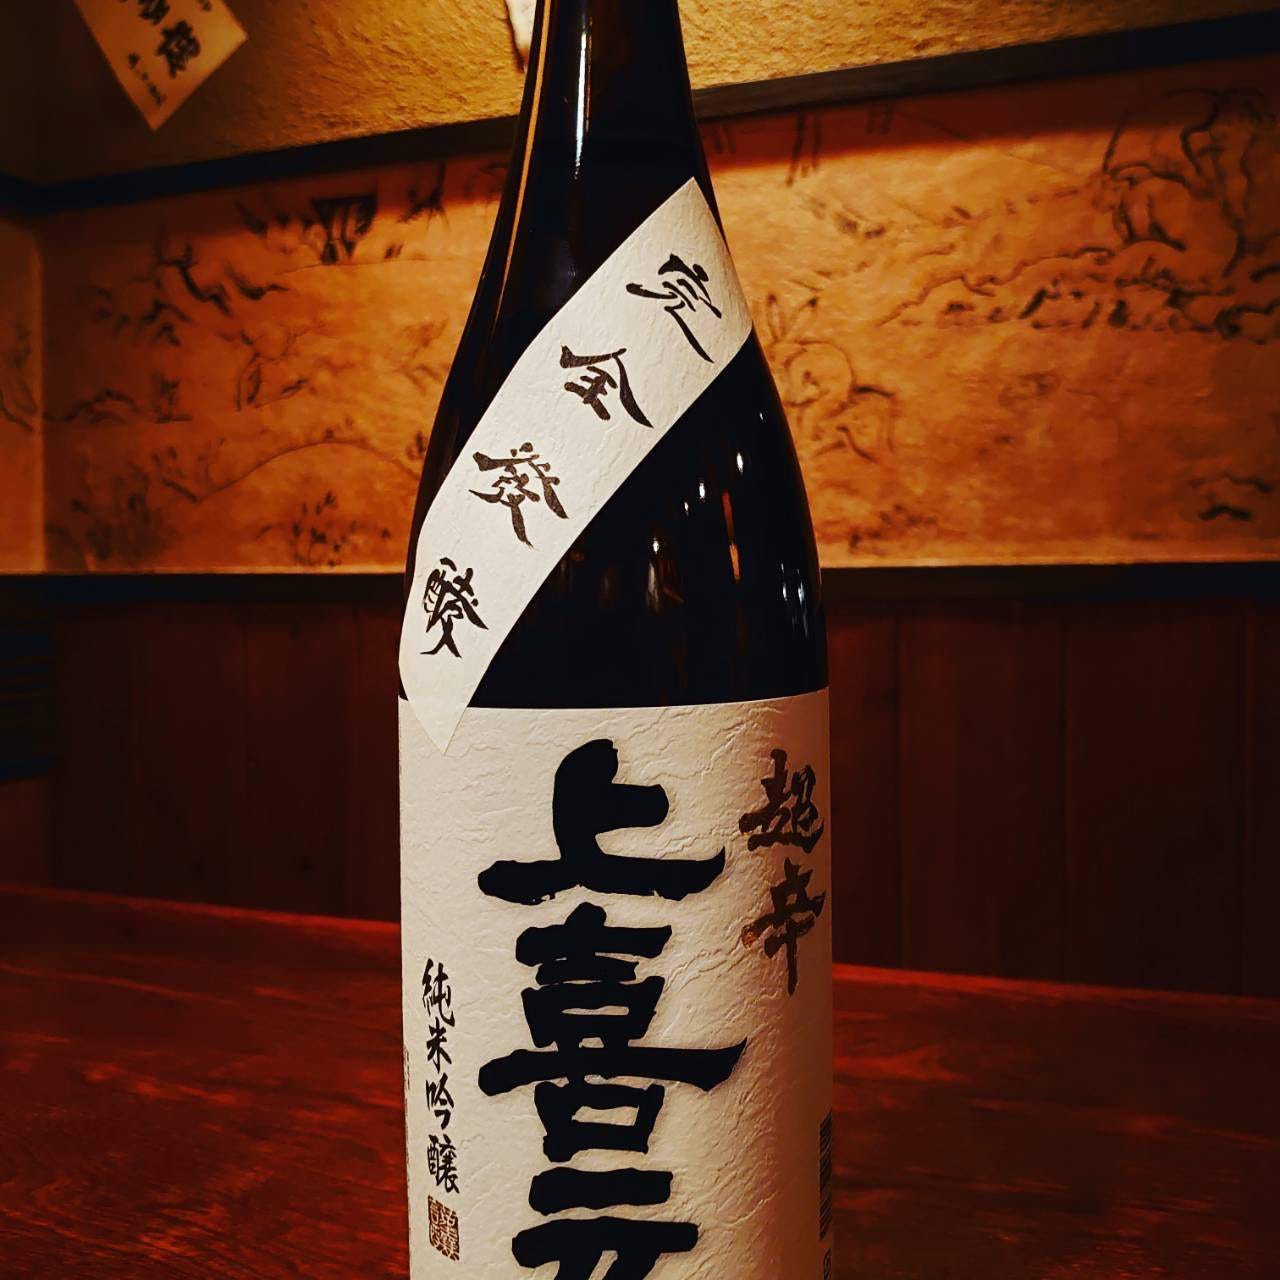 完全發酵
超辛
上喜元
純米吟醸